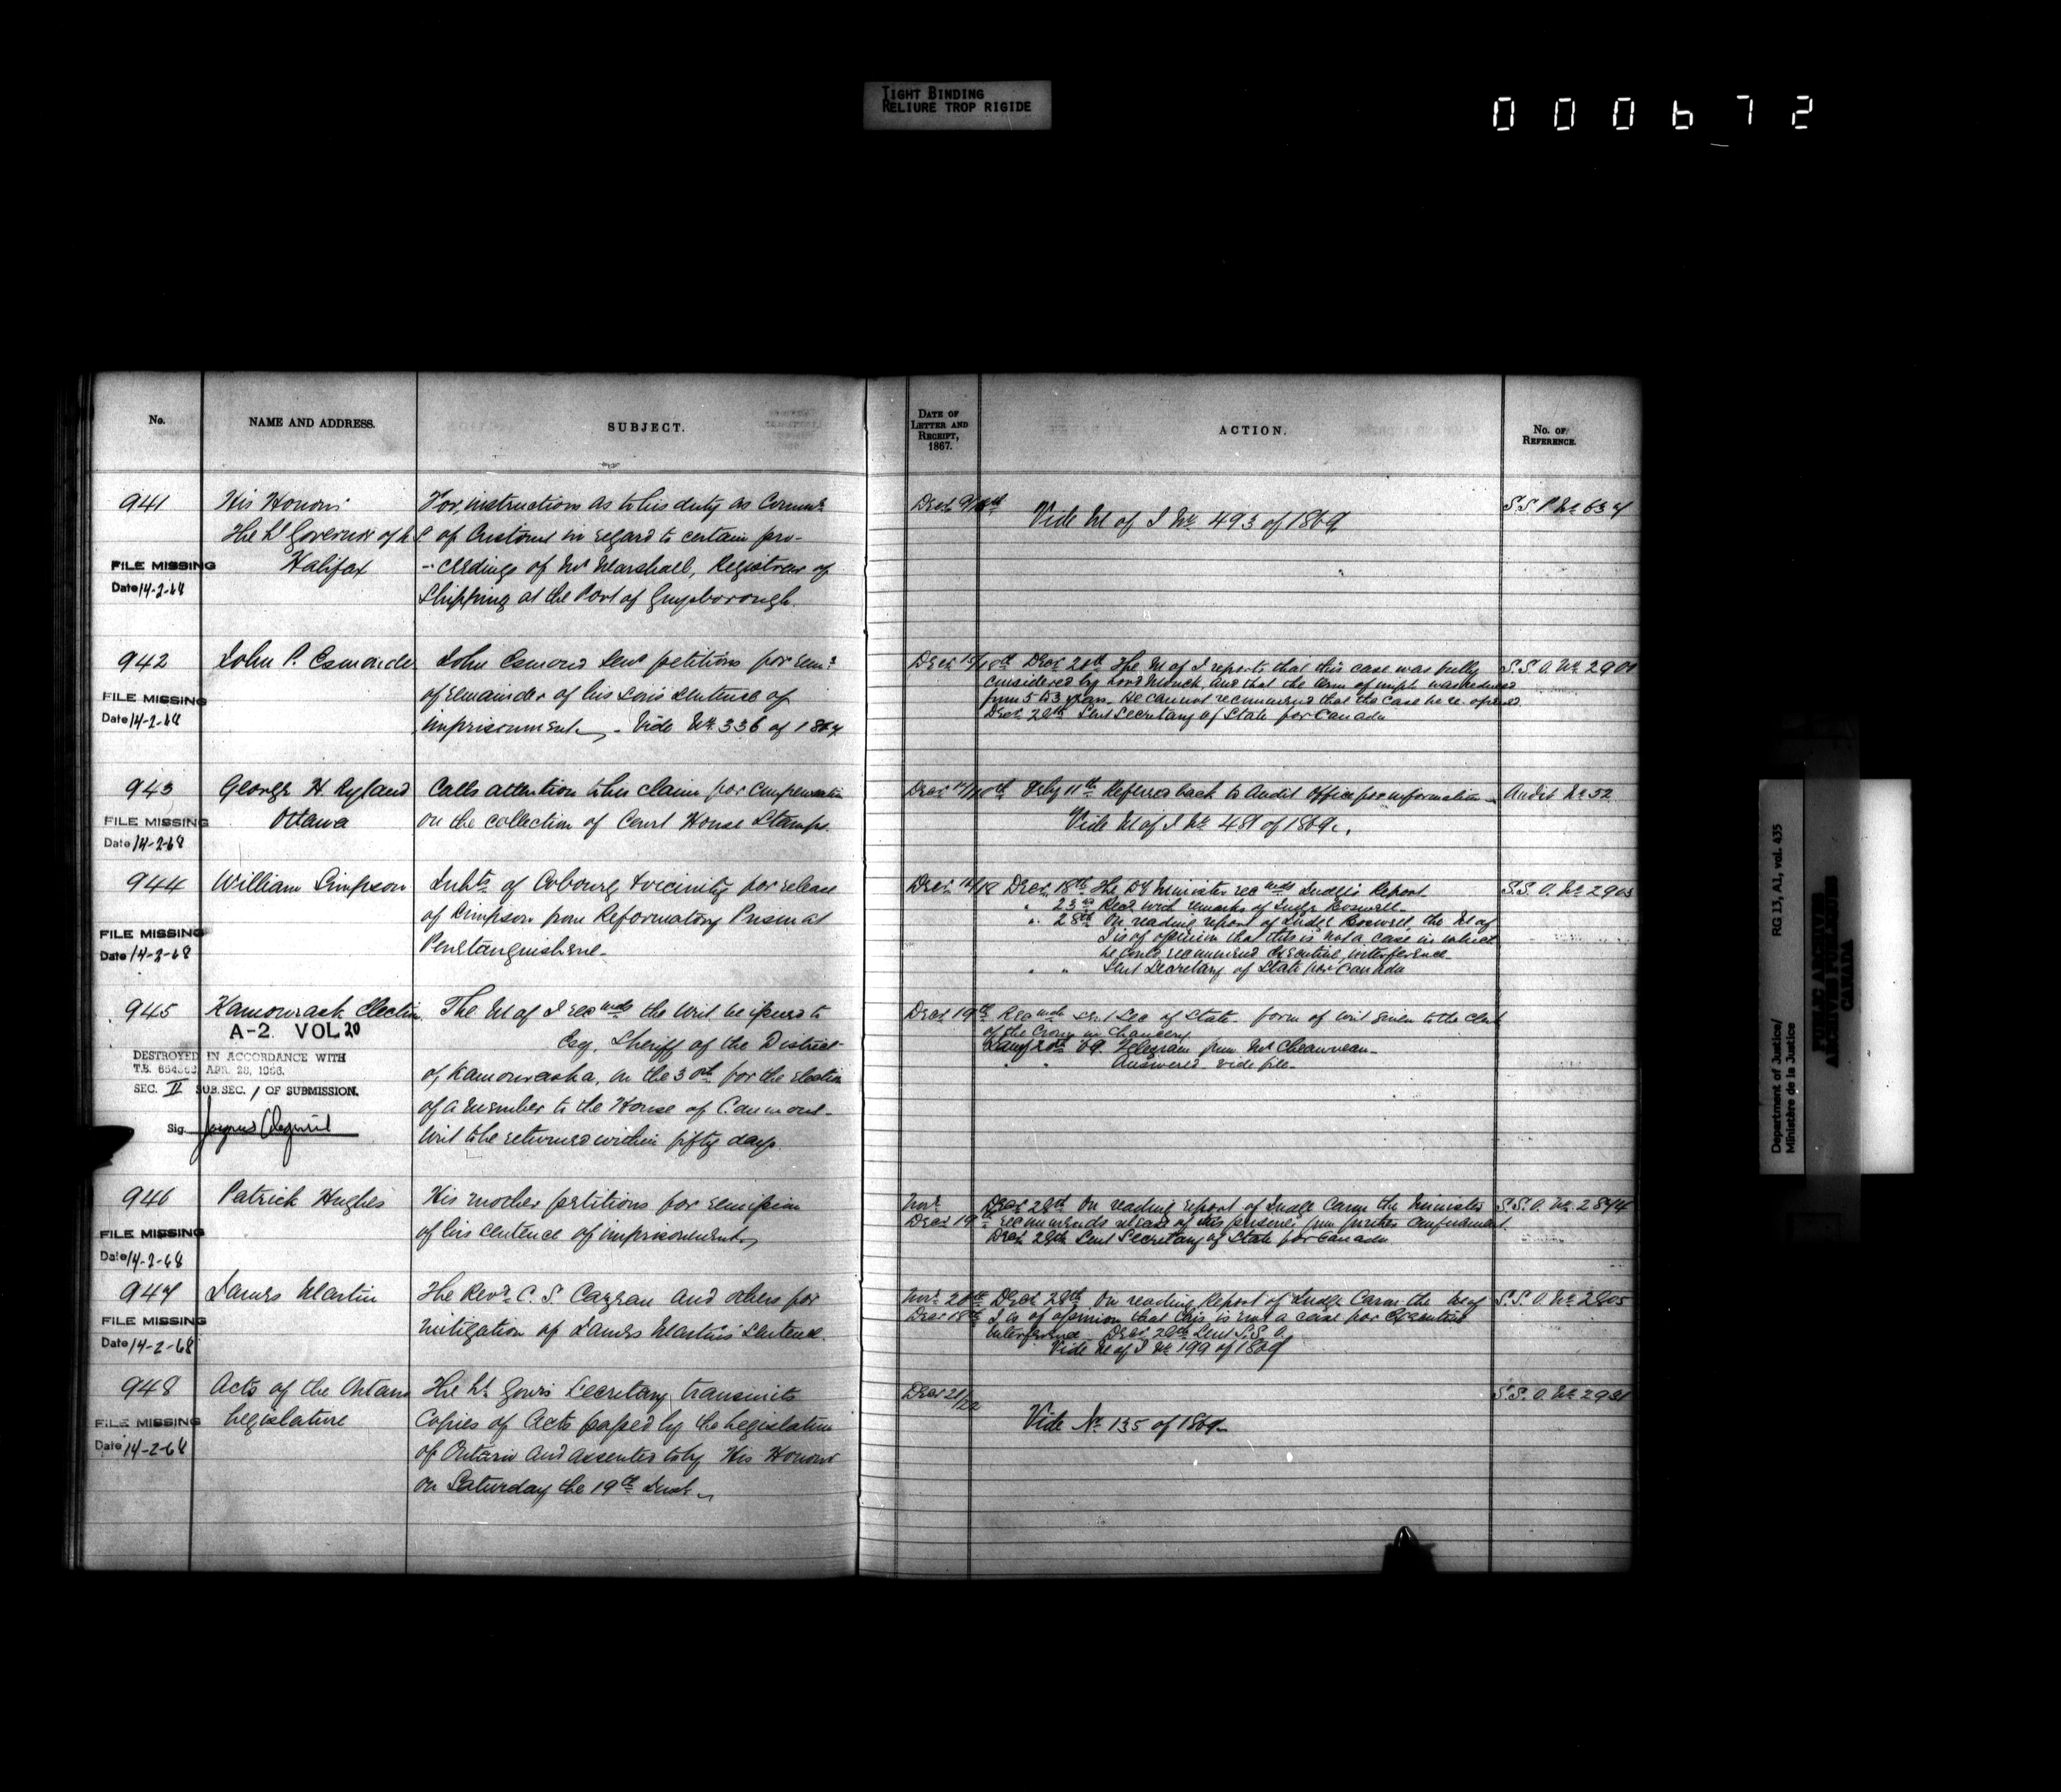 TIGHT BINDING
RELIURE TROP RIGIDE
000672
No.
NAME AND ADDRESS.
SUBJECT.
DATE OF LETTER AND RECEIPT, 1867.
ACTION.
No. OF REFERENCE.
941
His Honour
The Lt Governor of N.S.
Halifax
FILE MISSING
Date 14-2-68
For instructions as to his duty as Commr
of Customs in regard to certain pro-
-ceedings of Mr Marshall, Registrar of
Shipping at the Port of Guysborough.
Decr 9/
Vide M of J No 493 of 1869
S.S.P. No 634
942
John P. Esmonde
FILE MISSING
Date 14-2-68
John Esmond Senr petitions for remn
of remainder of his son's sentence of
imprisonment. Vide No 336 of 1867
Decr 15/18th Decr 28th The M of J reports that this case was fully
considered by Lord Monck, and that the term of impt was reduced
from 5 to 3 years. He cannot recommend that the case be re-opened.
Decr 28th Sent Secretary of State for Canada
S.S.O. No 2901
943
George H. Ryland
Ottawa
FILE MISSING
Date 14-2-68
Calls attention to his claim for compensation
on the collection of Court House Stamps.
Feby 11th Referred back to Audit Office for information
Vide M of J No 481 of 1869.
Audit No 52
944
William Simpson
FILE MISSING
Date 14-2-68
Inhbts of Cobourg & vicinity for release
of Simpson from Reformatory Prison at
Penetanguishene.
Decr 16/18 Decr 18th The Dy Minister recmds Judge's Report
" 23rd Recd with remarks of Judge Boswell
" 28th On reading report of Judge Boswell, the M of
J is of opinion that this is not a case in which
he could recommend Executive interference
" " Sent Secretary of State for Canada
S.S.O. No 2903
945
Kamouraska Election
A-2 VOL 20
DESTROYED IN ACCORDANCE WITH
T.B. APR. 28, 1966.
SEC. II SUB.SEC. 1 OF SUBMISSION.
Sig.
The M of J recmds the Writ be issued to
Esq, Sheriff of the District
of Kamouraska, on the 30th for the election
of a member to the House of Commons.
Writ to be returned within fifty days.
Decr 19th Recmds Sent Sec of State form of writ given to the Clerk
of the Crown in Chancery
Jany 20th 69 Telegram from Mr Chauveau
" " Answered vide file
946
Patrick Hughes
FILE MISSING
Date 14-2-68
His mother petitions for remission
of his sentence of imprisonment
Novr
Decr 28th On reading report of Judge Caron the Minister
Decr 19th recommends release of this prisoner from further confinement.
Decr 28th Sent Secretary of State for Canada
S.S.O. No 2844
947
James Martin
FILE MISSING
Date 14-2-68
The Revd C. S. Cazeau and others for
mitigation of James Martin's sentence.
Novr 20th Decr 28th On reading Report of Judge Caron the M of
Decr 18th J is of opinion that this is not a case for Executive
interference Decr 28th Sent S.S.O.
Vide M of J No 199 of 1869
S.S.O. No 2805
948
Acts of the Ontario
Legislature
FILE MISSING
Date 14-2-68
The Lt. Govr's Secretary transmits
Copies of Acts passed by the Legislature
of Ontario and assented to by His Honour
on Saturday the 19th Inst
Decr 21/22
Vide No 135 of 1869
S.S.O. No 2931
Department of Justice/
Ministère de la Justice
RG 13, A1, vol. 435
PUBLIC ARCHIVES
ARCHIVES PUBLIQUES
CANADA